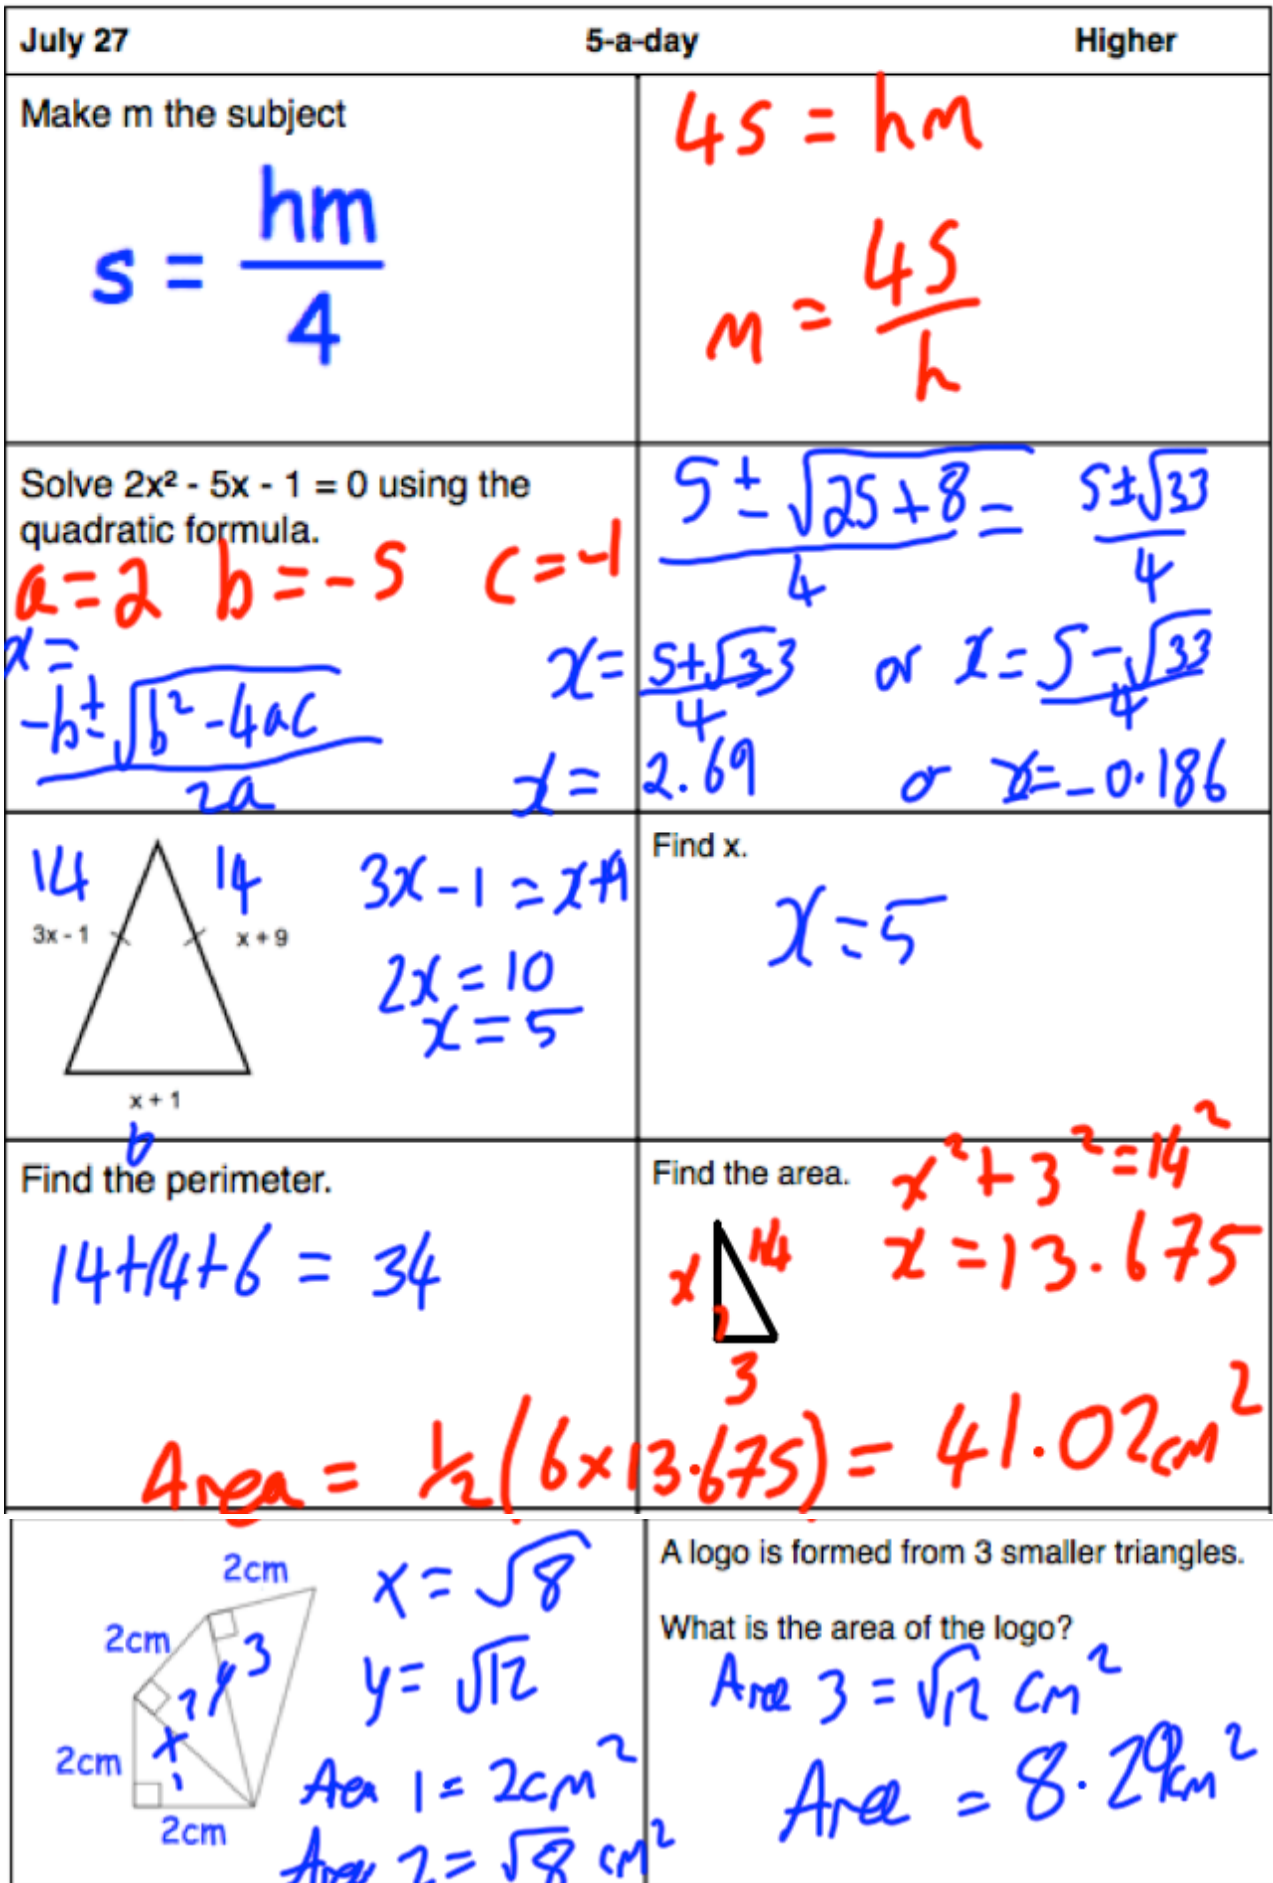 July 27 5-a-day Higher
Make m the subject
s = hm/4
4s = hm
m = 4s/h
Solve 2x² - 5x - 1 = 0 using the
quadratic formula.
a = 2 b = -5 c = -1
x =
-b ± √(b² - 4ac)
2a
5 ± √(25 + 8)/4 = 5 ± √33/4
x = 5 + √33/4 or x = 5 - √33/4
x = 2.69 or x = -0.186
14 14
3x - 1 x + 9
x + 1
6
3x - 1 = x + 9
2x = 10
x = 5
Find x.
x = 5
Find the perimeter.
14 + 14 + 6 = 34
Find the area.
x² + 3² = 14²
x = 13.675
x 14
3
Area = ½(6 × 13.675) = 41.02cm²
2cm
2cm
2cm
2cm
3
y
2
x
1
x = √8
y = √12
Area 1 = 2cm²
Area 2 = √8 cm²
A logo is formed from 3 smaller triangles.
What is the area of the logo?
Area 3 = √12 cm²
Area = 8.29cm²